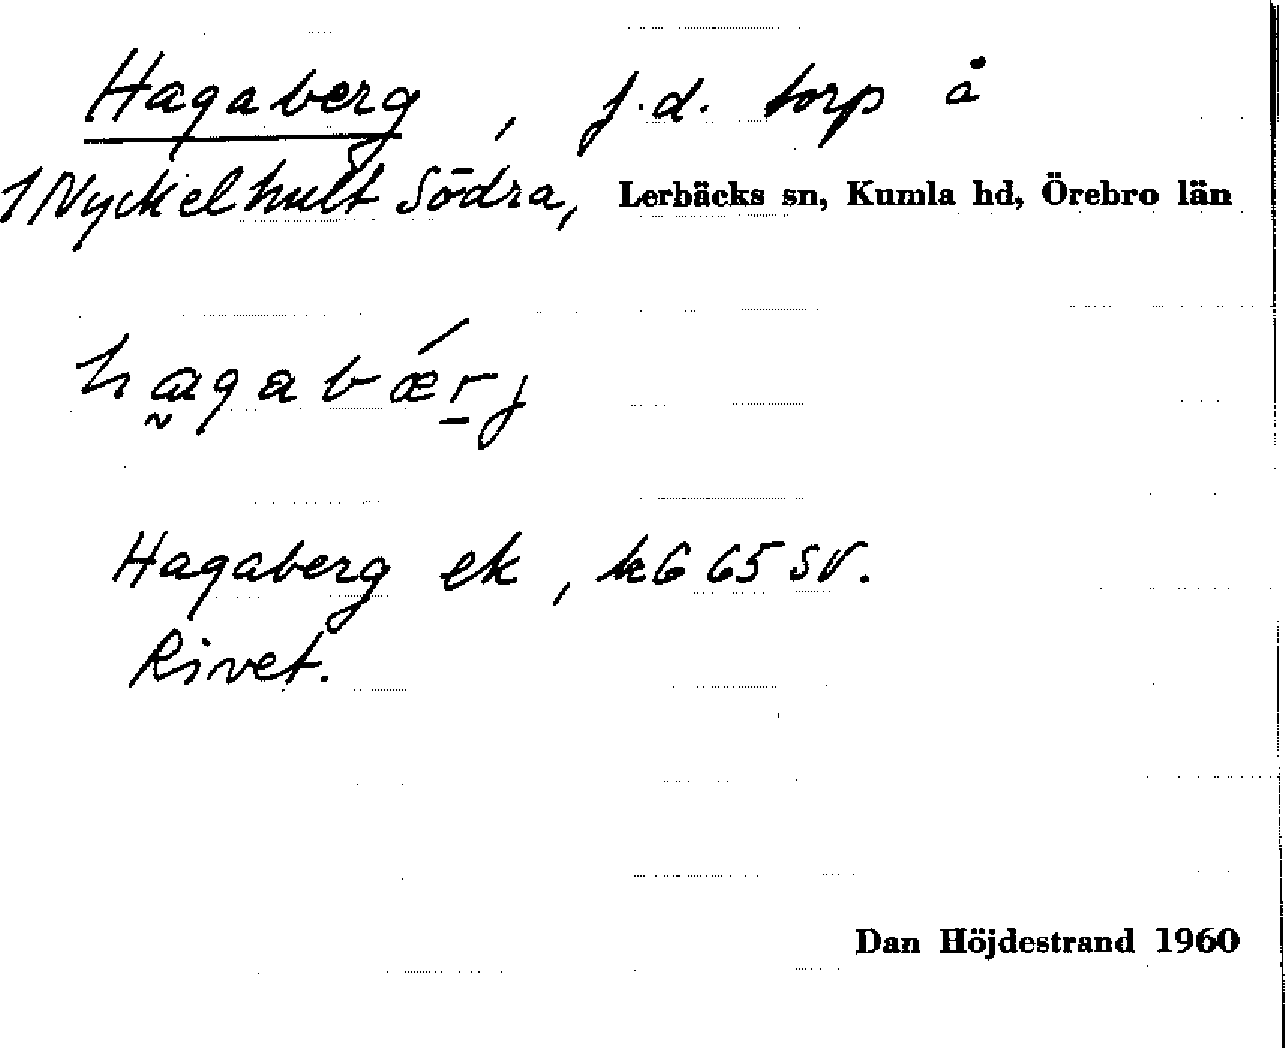 Hagaberg, f.d. torp å
1 Nyckelhult Södra, Lerbäcks sn, Kumla hd, Örebro län
hagabǽrj
Hagaberg ek, k6 65 SV.
Rivet.
Dan Höjdestrand 1960